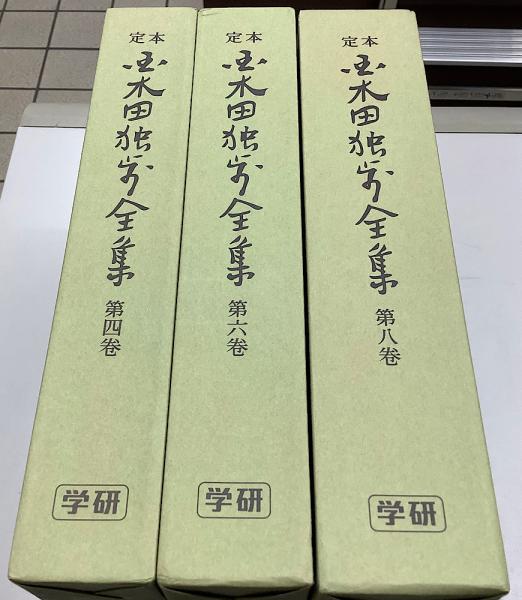 定本
国木田独歩全集
第四巻
学研
定本
国木田独歩全集
第六巻
学研
定本
国木田独歩全集
第八巻
学研